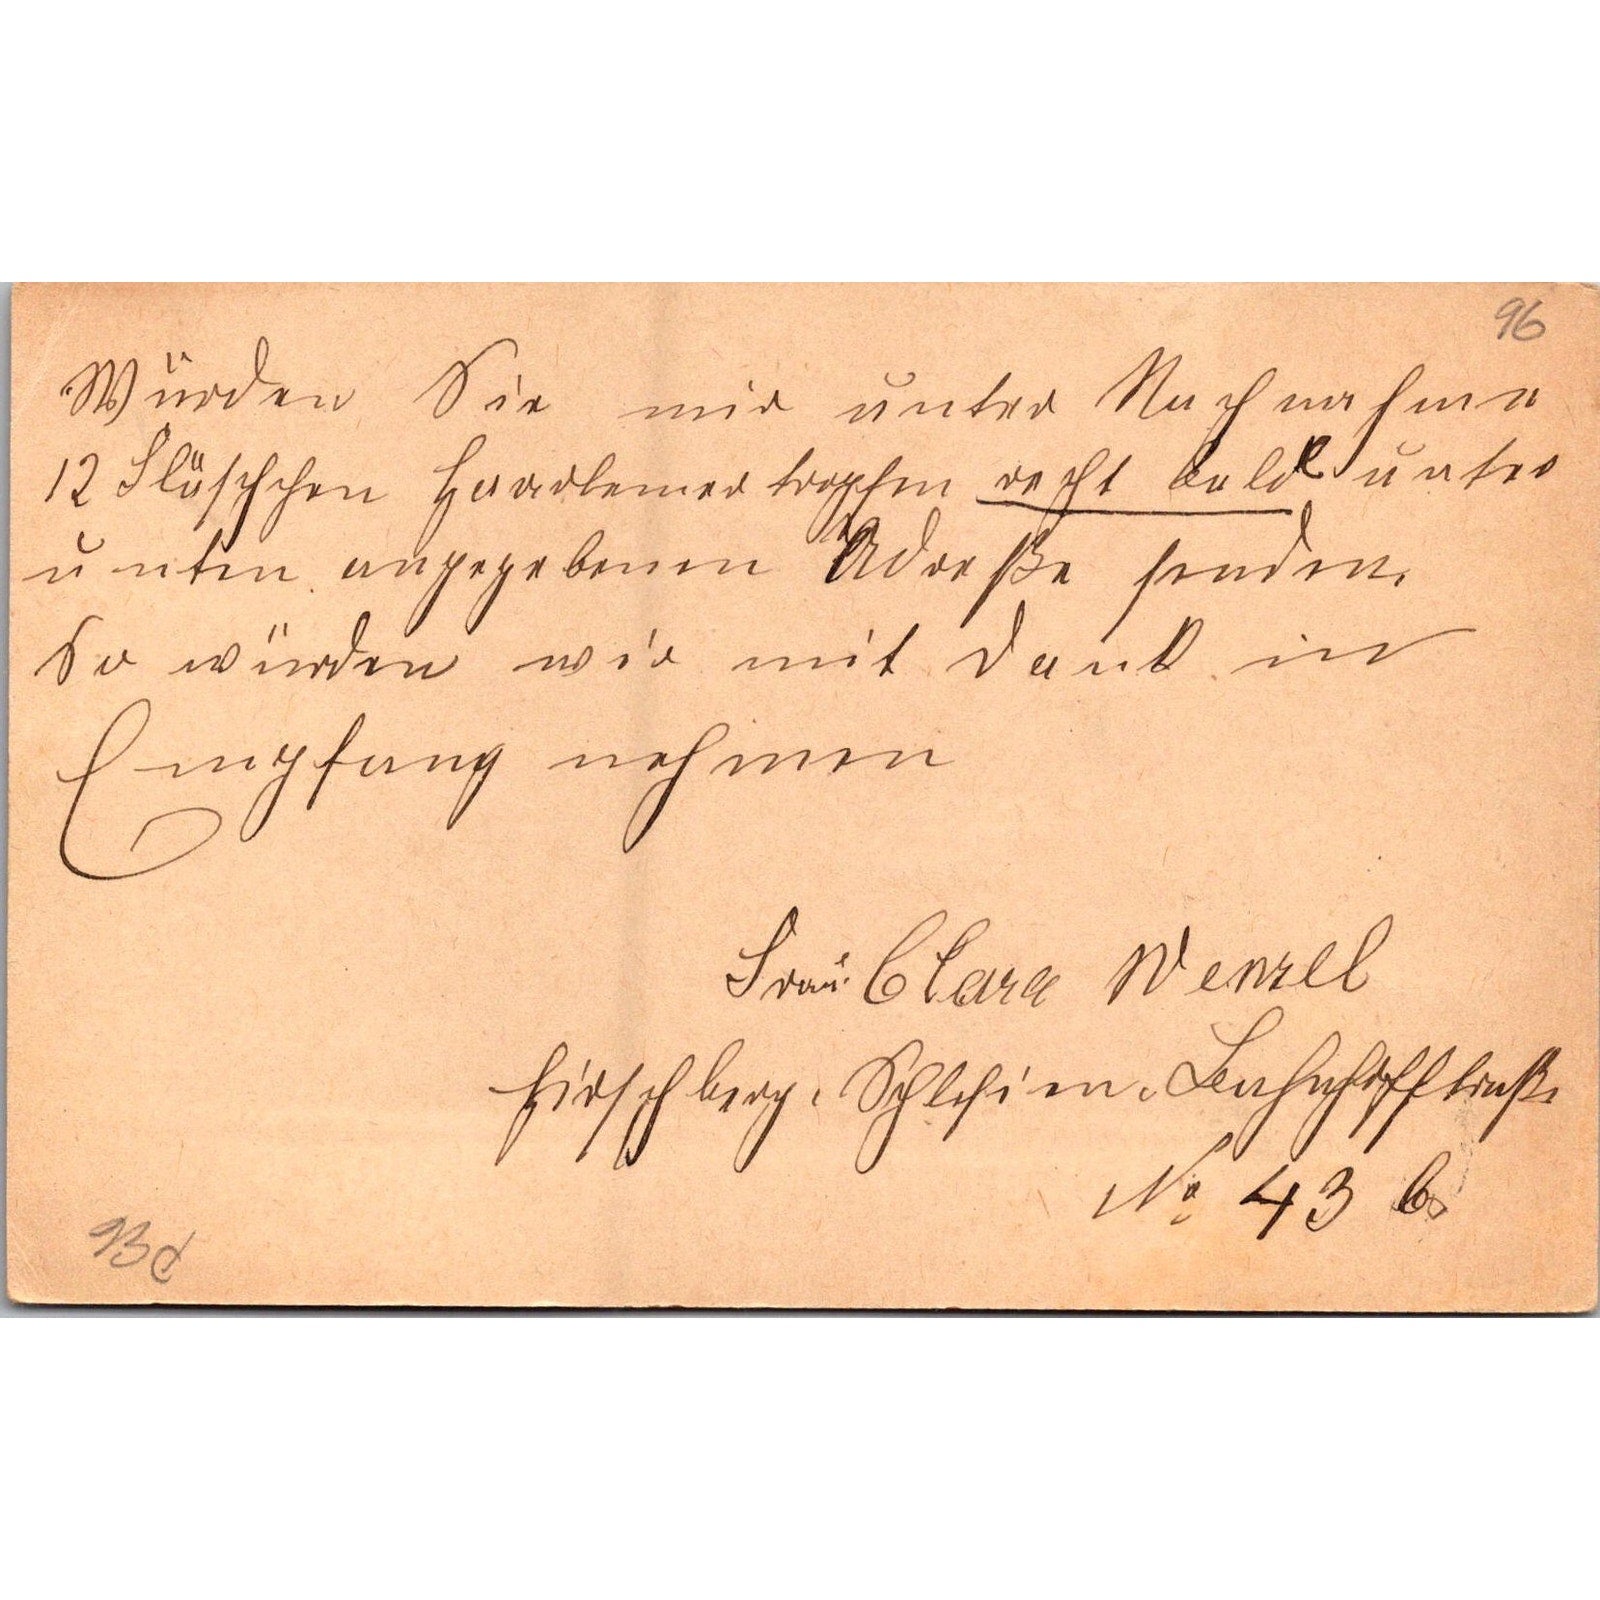 96
Würden Sie mir unter Nachnahme
12 Fläschchen Haarlemer tropfen recht bald unter
unten angegebenen Adreße senden.
So würden wir mit Dank in
Empfang nehmen
Frau Clara Wenzel
Hirschberg. Schlesien. Bahnhofstraße
No 43 b.